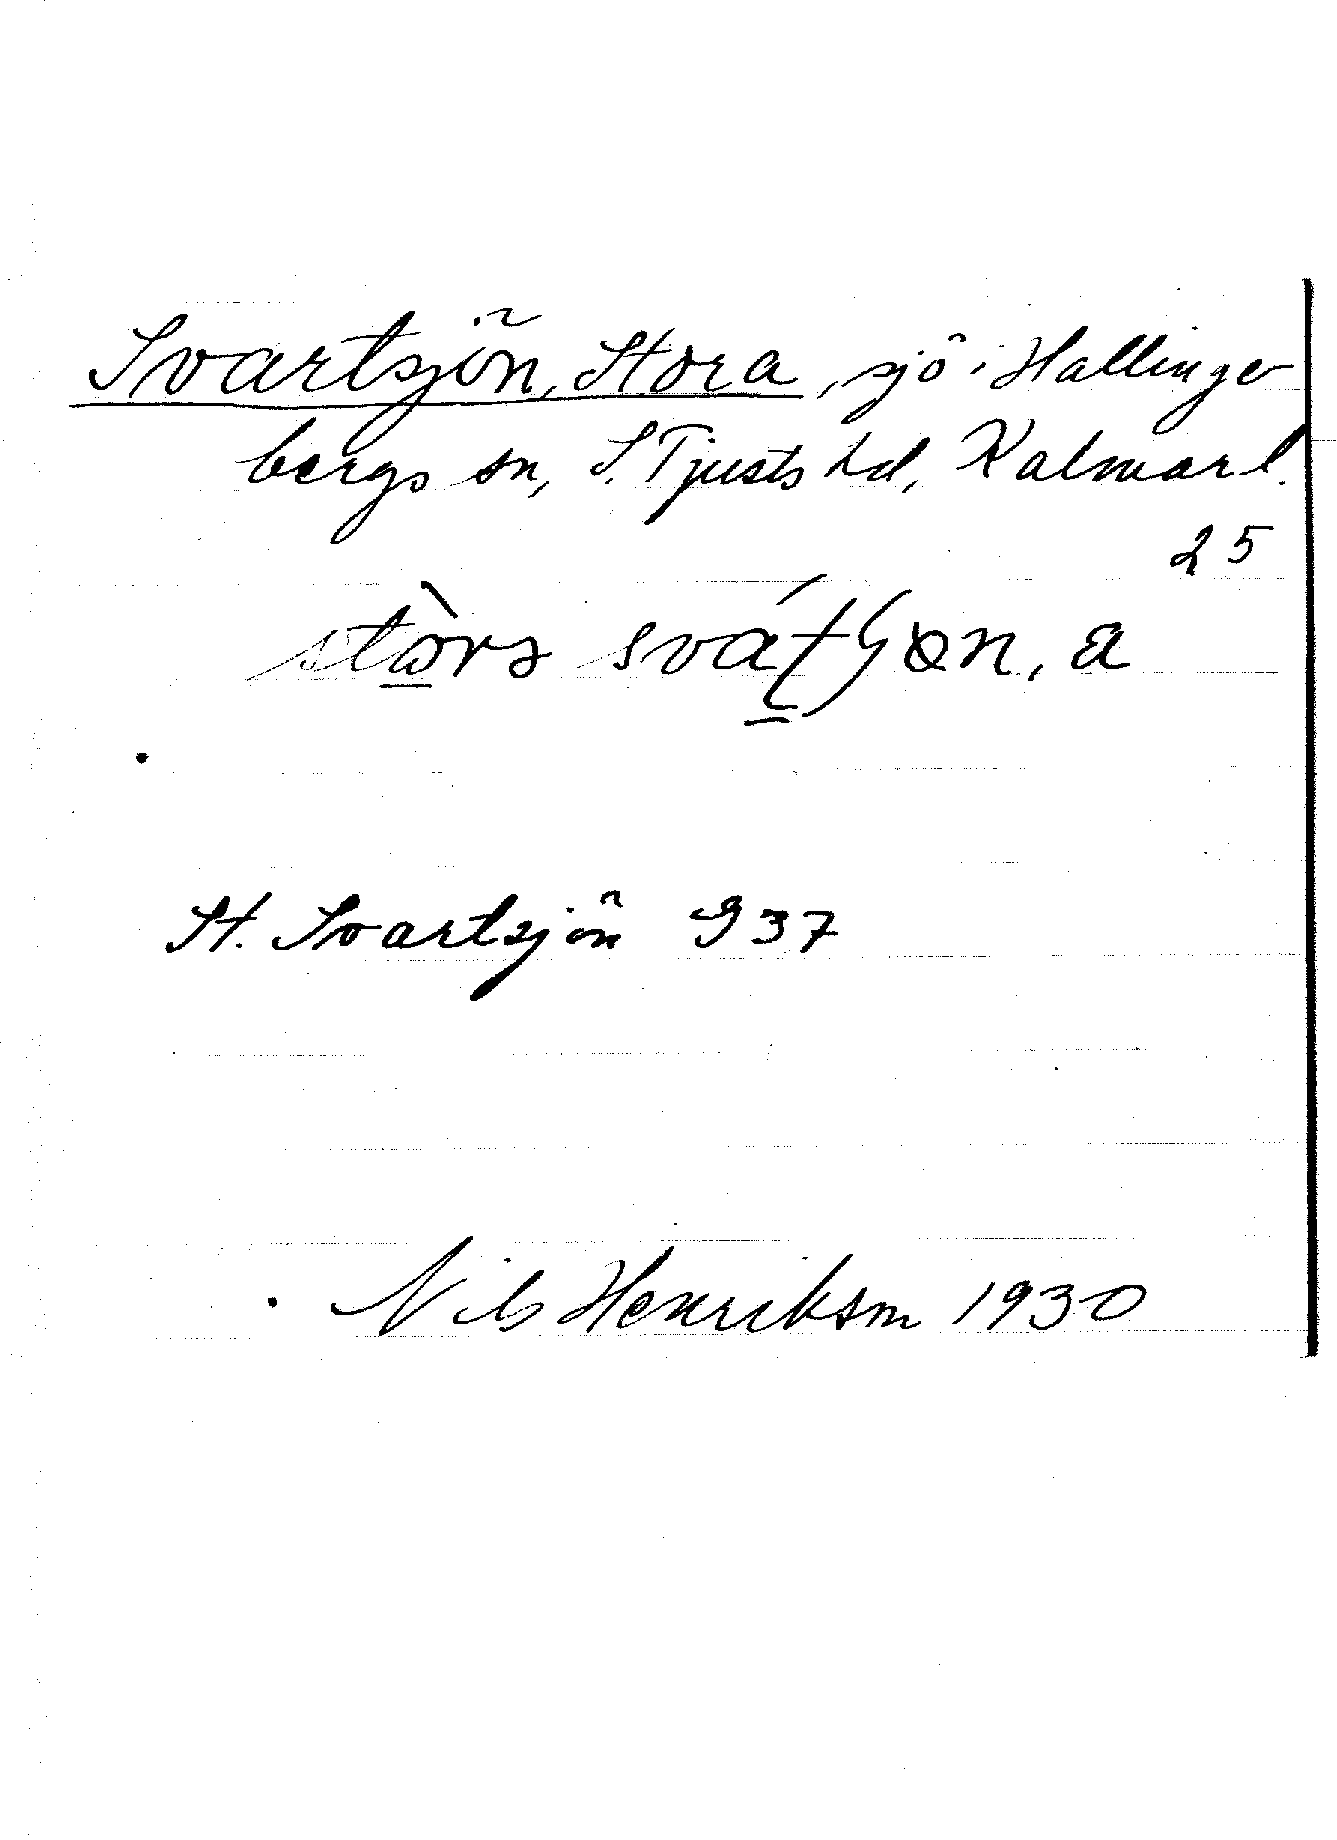 Svartsjön, Stora, sjö i Hallinge
bergs sn, S. Tjusts hd, Kalmar l.
25
stὼ̲rə svát̲ɧɵn, a
St. Svartsjön G 37
Nils Henrikson 1930